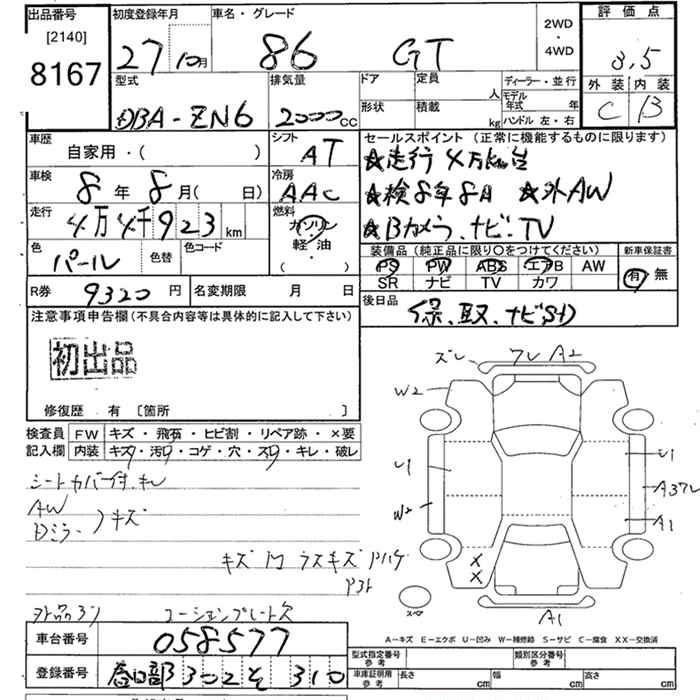 出品番号 初度登録年月 車名・グレード 2WD・4WD 評価点
[2140]
8167 27 10月 86 GT 3.5
型式 排気量 ドア 定員 人 ディーラー・並行 外装 内装
DBA-ZN6 2000cc 形状 積載 kg モデル年式 年 C B
ハンドル 左・右
車歴 シフト セールスポイント (正常に機能するものに限ります)
自家用・( ) AT ☆走行 4万km台
車検 8年 8月( 日) 冷房 AAC ☆検8年8月 ☆外AW
走行 4万4千923km 燃料 ガソリン 軽油 ( ) ☆Bカメラ、ナビ・TV
色 パール 色替 色コード 装備品 (純正品に限り〇をつけてください) 新車保証書
PS PW ABS エアB AW 有・無
SR ナビ TV カワ
R券 9320円 名変期限 月 日 後日品 保、取、ナビSD
注意事項申告欄(不具合内容等は具体的に記入して下さい)
初出品
修復歴 有 [箇所 ]
ズレ ワレ A2
W2
検査員 FW キズ・飛石・ヒビ割・リペア跡・×要
記入欄 内装 キズ・汚・コゲ・穴・スレ・キレ・破レ
シートカバー付
U1 U1
AW
Dミラー キズ
W2 A3ワレ
A1
キズ
X
X
コーションプレート欠
スペア A1
A-キズ E-エクボ U-凹み W-補修跡 S-サビ C-腐食 XX-交換済
車台番号 058577 型式指定番号 参考 類別区分番号 参考
登録番号 春日部 302 そ 310 車庫証明用 参考 長さ cm 幅 cm 高さ cm